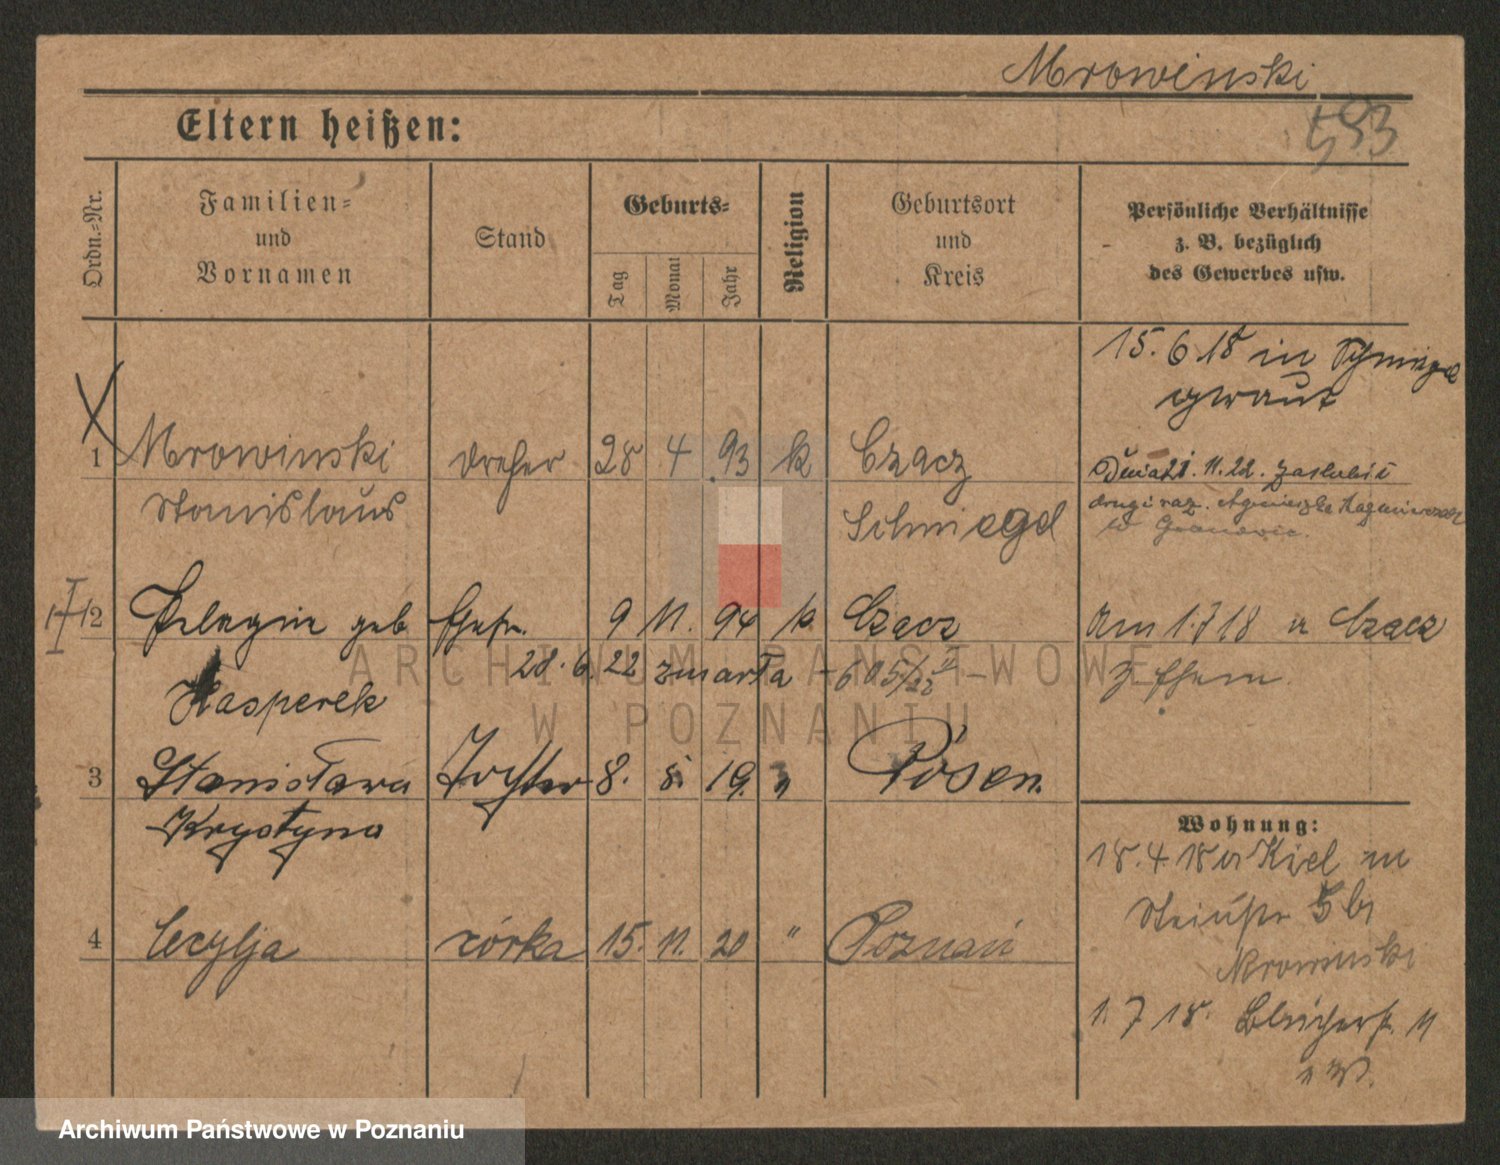 Mrowinski
Eltern heißen:
593
Ordn.=Nr.
Familien=
und
Vornamen
Stand
Geburts=
Tag
Monat
Jahr
Religion
Geburtsort
und
Kreis
Persönliche Verhältnisse
z. B. bezüglich
des Gewerbes usw.
15.6.18 in Schmiegel
getraut
1 Mrowinski dreher 28 4 93 k Czacz
Stanislaus Schmiegel
Dnia 21. 11. 22. zaślubił
drugi raz. Agnieszka
w
2 Pelagia geb Ehefr. 9 11. 94 k. Czacz
Kasperek
28. 6. 22 zmarła
Am 1.7 18 v Czacz
z Ehem.
3 Stanisława Tochter 8. 8. 19. " Posen.
Krystyna
4 Cecylja córka 15. 11. 20 " Poznań
Wohnung:
18. 4. 18 v Kiel
5 b
Mrowinski
1. 7 18. Bleicherstr. 11
ARCHIWUM PAŃSTWOWE
W POZNANIU
Archiwum Państwowe w Poznaniu